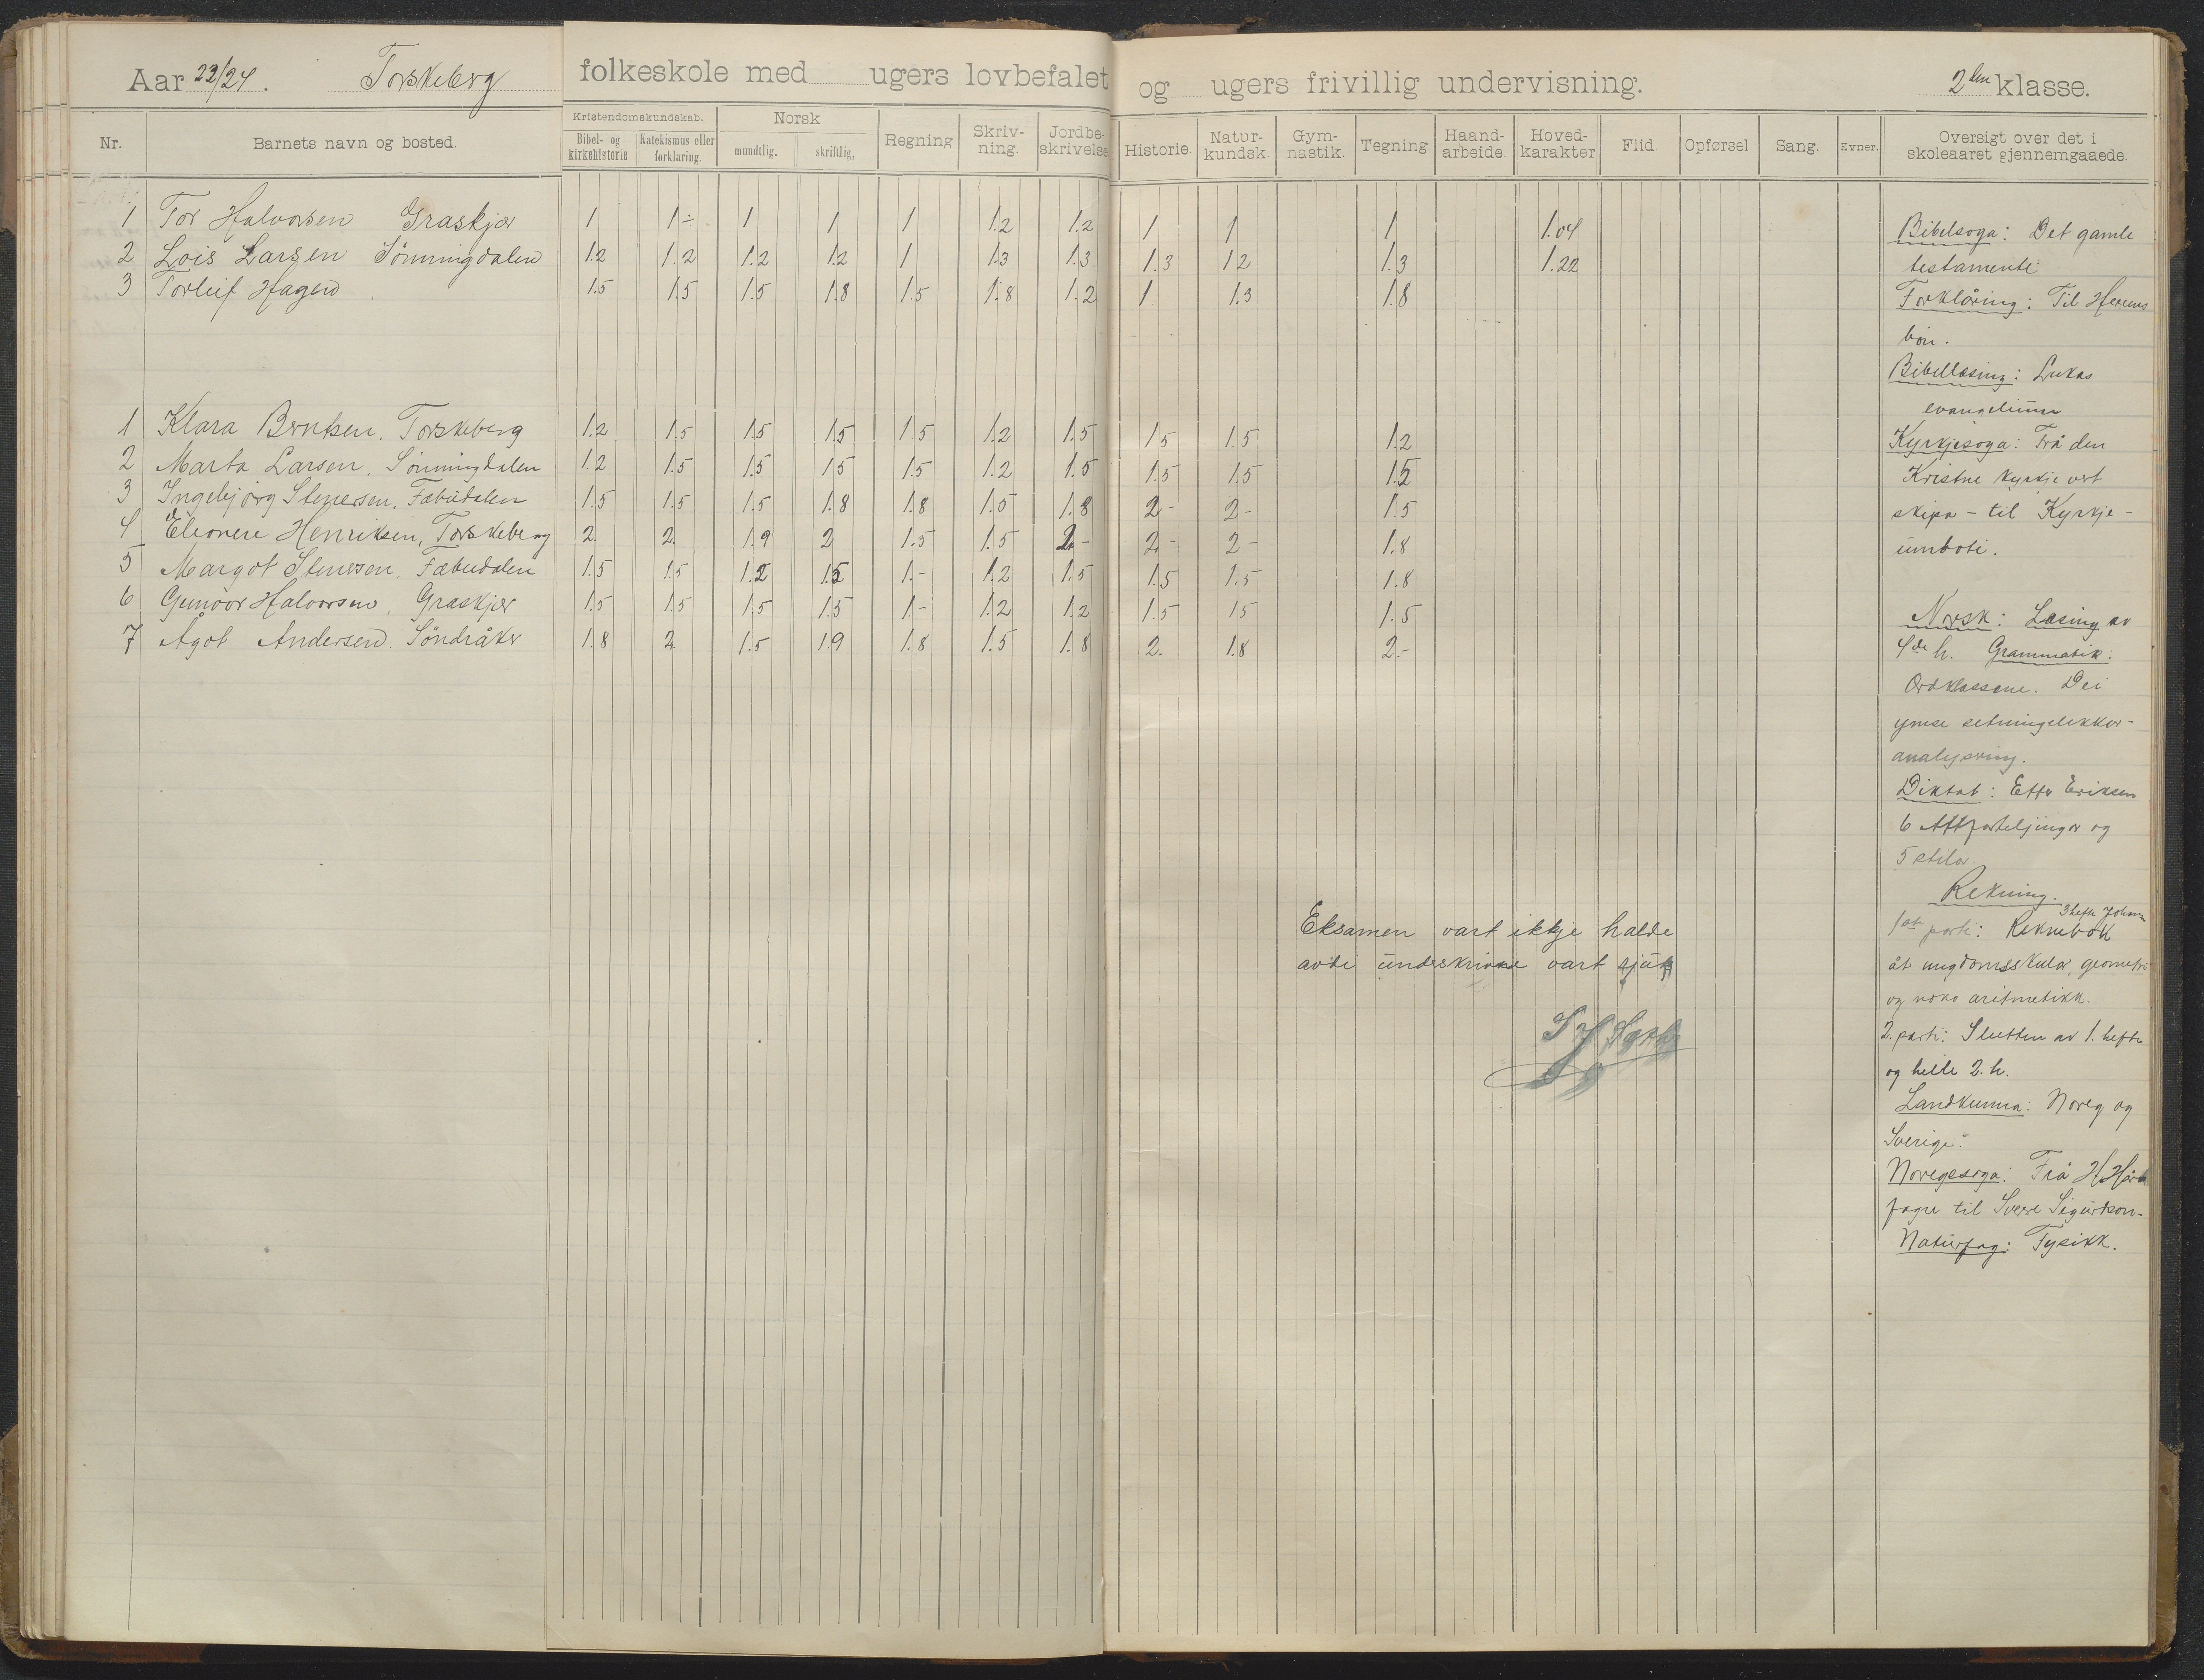 Aar 23/24. Torskeberg folkeskole med ugers lovbefalet og ugers frivillig undervisning. 2den klasse.
Nr. Barnets navn og bosted. Kristendomskundskab. Bibel- og kirkehistorie Katekismus eller forklaring. Norsk mundtlig. skriftlig, Regning Skriv-ning. Jordbe-skrivelse Historie. Natur-kundsk. Gym-nastik. Tegning Haand-arbeide. Hoved-karakter Flid. Opførsel Sang. Evner. Oversigt over det i skoleaaret gjennemgaaede.
1 Tor Halvorsen Graskjær 1 1÷ 1 1 1 1.2 1.2 1 1 1 1.04
2 Lois Larsen Sönningdalen 1.2 1.2 1.2 1.2 1 1.3 1.3 1.3 1.2 1.3 1.22
3 Torleif Hagen 1.5 1.5 1.5 1.8 1.5 1.8 1.2 1 1.3 1.8
1 Klara Berntsen. Torskeberg 1.2 1.5 1.5 1.5 1.5 1.2 1.5 1.5 1.5 1.2
2 Marta Larsen. Sönningdalen 1.2 1.5 1.5 1.5 1.5 1.2 1.5 1.5 1.5 1.5
3 Ingebjörg Stenersen. Fæbudalen 1.5 1.5 1.5 1.8 1.8 1.5 1.8 2- 2- 1.5
4 Eleonere Henriksen, Torskeberg 2. 2. 1.9 2 1.5 1.5 2.- 2.- 2- 1.8
5 Margot Stenersen. Fæbudalen 1.5 1.5 1.2 1.5 1.- 1.2 1.5 1.5 1.5 1.8
6 Gunvor Halvorsen, Graskjær 1.5 1.5 1.5 1.5 1- 1.2 1.2 1.5 1.5 1.5
7 Ågot Andersen. Söndråker 1.8 2. 1.5 1.9 1.8 1.5 1.8 2. 1.8 2.-
Eksamen vart ikkje halde
avdi underskrivne vart sjuk
Bibelsoga: Det gamle
testamente
Forklåring: Til Herrens
bön.
Bibellesing: Lukas
evangelium
Kyrkjesoga: Frå den
Kristne kyrkje vert
skipa - til Kyrkje-
umboti.
Norsk: Lesing av
4de h. Grammatik:
Ordklassene. Dei
ymse setningslekker-
analysering.
Diktat: Etter Eriksen
6 Attforteljingar og
5 stilar
Rekning.
3 hefte Johnsen
1ste parti: Reknebok
åt ungdomsskular, geometri
og noko aritmetikk.
2. parti: Slutten av 1. hefte
og heile 2. h.
Landkunna: Noreg og
Sverige.
Noregssoga: Frå H. Hår-
fagre til Sverre Sigurdson.
Naturfag: Fysikk.